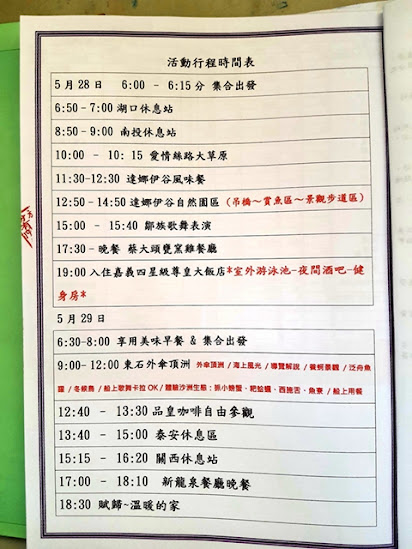 活動行程時間表
5月28日 6:00 - 6:15分 集合出發
6:50-7:00湖口休息站
8:50-9:00 南投休息站
10:00 - 10:15 愛情絲路大草原
11:30-12:30 達娜伊谷風味餐
12:50-14:50達娜伊谷自然園區(吊橋~賞魚區~景觀步道區)
15:00 - 15:40 鄒族歌舞表演
17:30-晚餐 蔡大頭甕窯雞餐廳
19:00入住嘉義四星級尊皇大飯店*室外游泳池-夜間酒吧-健
身房*
5月29日
6:30-8:00 享用美味早餐 & 集合出發
9:00- 12:00東石外傘頂洲 外傘頂洲 / 海上風光 / 導覽解說 / 養蚵景觀 / 泛舟魚
躍 / 冬候鳥 / 船上歌舞卡拉OK / 體驗沙洲生態:抓小螃蟹、耙蛤蠣、西施舌、魚寮 / 船上用餐
12:40 - 13:30品皇咖啡自由參觀
13:40 - 15:00 泰安休息區
15:15 - 16:20 關西休息站
17:00 - 18:10 新龍泉餐廳晚餐
18:30 賦歸~溫暖的家